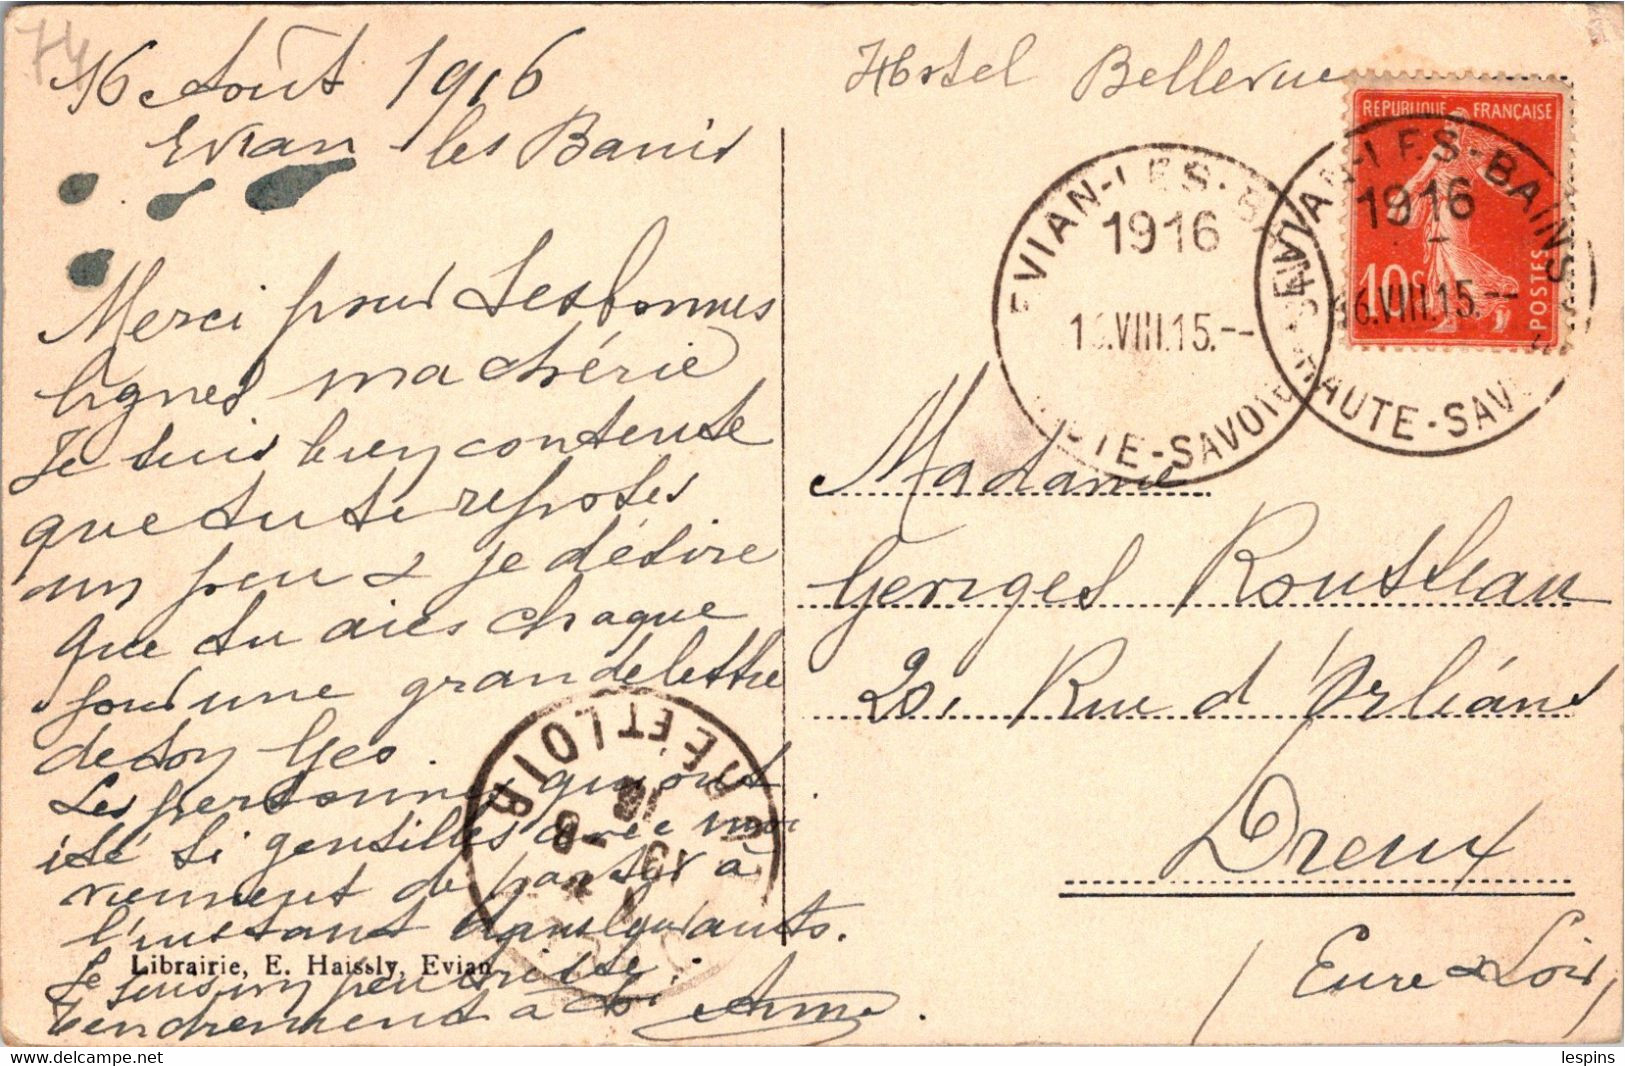 74
16 Août 1916
Evian les Bains
Hotel Bellevue
REPUBLIQUE FRANÇAISE
10c
POSTES
EVIAN-LES-BAINS
1916
16.VIII.15.--
HAUTE-SAVOIE
EVIAN-LES-BAINS
1916
16.VIII.15.--
HAUTE-SAVOIE
Merci pour tes bonnes
lignes ma chérie
Je suis bien contente
que tu te reposes
un peu & je désire
que tu aies chaque
jour une grande lettre
de ton Geo.
Les personnes qui ont
été si gentilles avec moi
viennent de partir à
l'instant
Je suis un peu triste.
Tendrement à toi
Madame
Georges Rousseau
20, Rue d'Orléans
Dreux
(Eure & Loir)
EURE ET LOIR
Librairie, E. Haissly, Evian
lespins